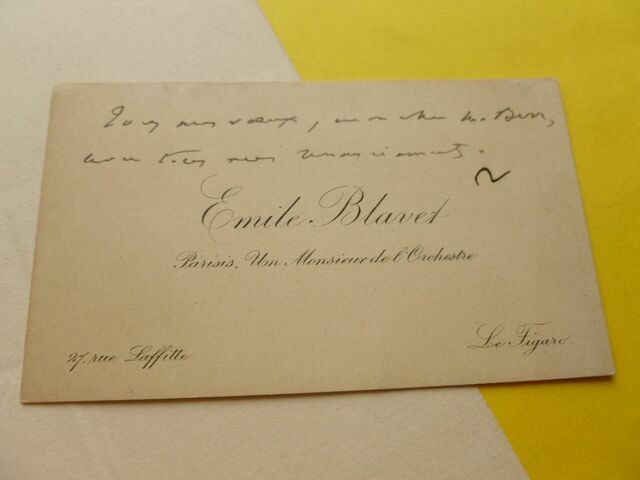 Tous mes vœux, mon cher M.
avec tous mes remerciements.
Emile Blavet
Parisis, Un Monsieur de l'Orchestre
27, rue Laffitte
Le Figaro.